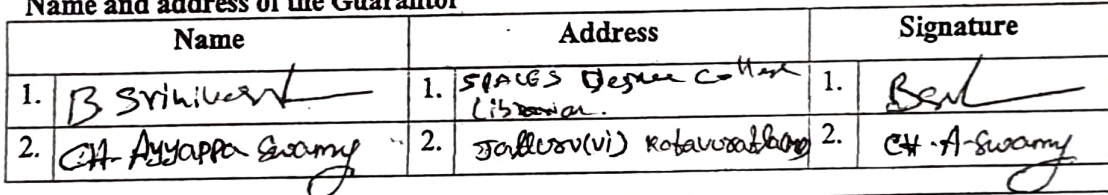 Name and address of the Guarantor
Name Address Signature
1. B Srinivas 1. SPACES Degree College 1. 
Librarian.
2. CH. Ayyappa Swamy 2. (vi) 2. CH. A. Swamy